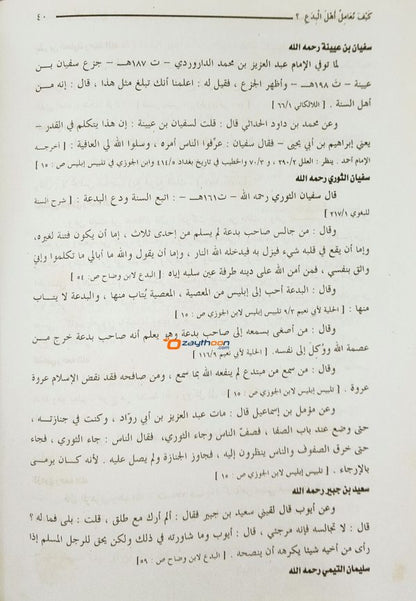 كَيْفَ نُعَامِلُ أَهْلَ الْبِدَعِ . ؟ ٤٠
سفيان بن عيينة رحمه الله
لما توفي الإمام عبد العزيز بن محمد الداروردي – ت ١٨٧هـ – جزع سفيان بن
عيينة – ت ١٩٨هـ – وأظهر الجزع ، فقيل له : اعلمنا أنك تبلغ مثل هذا ، قال : إنه من
أهل السنة . [ اللالكائي ٦٦/١ ]
وعن محمد بن داود الحداني قال : قلت لسفيان بن عيينة : إن هذا يتكلم في القدر –
يعني إبراهيم بن أبي يحيى – فقال سفيان : عرِّفوا الناس أمره ، وسلوا الله لي العافية : [ أخرجه
الإمام أحمد . ينظر : العلل ٣٩٠/٢ ، ٧٠/٣ والخطيب في تاريخ بغداد ٤١٤/٥ وابن الجوزي في تلبيس إبليس ص : ١٥ ]
سفيان الثوري رحمه الله
قال سفيان الثوري رحمه الله – ت١٦١هـ – : اتبع السنة ودع البدعة : [ شرح السنة
للبغوي ٢١٧/١ ]
وقال : من جالس صاحب بدعة لم يسلم من إحدى ثلاث ، إما أن يكون فتنة لغيره،
وإما أن يقع في قلبه شيء فيزل به فيدخله الله النار ، وإما أن يقول والله ما أبالي ما تكلموا وإني
واثق بنفسي ، فمن أمن الله على دينه طرفة عين سلبه إياه : [ البدع لابن وضاح ص : ٥٤ ]
وقال : البدعة أحب إلى إبليس من المعصية ، المعصية يُتاب منها ، والبدعة لا يتاب
منها : [ الحلية لأبي نعيم ٩/٣ تلبيس إبليس لابن الجوزي ص : ١٥ ]
وقال : من أصغى بسمعه إلى صاحب بدعة وهو يعلم أنه صاحب بدعة خرج من
zaythoon.com
عصمة الله ووُكِلَ إلى نفسه . [ الحلية لأبي نعيم ١١٦/٩ ]
وقال : من سمع من مبتدع لم ينفعه الله بما سمع ، ومن صافحه فقد نقض الإسلام عروة
عروة . [ تلبيس إبليس لابن الجوزي ص : ١٥ ]
وعن مؤمل بن إسماعيل قال : مات عبد العزيز بن أبي روّاد ، وكنت في جنازته ،
حتى وضع عند باب الصفا ، فصفّ الناس وجاء الثوري، فقال الناس : جاء الثوري ، فجاء
حتى خرق الصفوف والناس ينظرون إليه ، فجاوز الجنازة ولم يصل عليه . لأنه كان يرمى
بالإرجاء . [ تلبيس إبليس لابن الجوزي ص : ١٥ ]
سعيد بن جبير رحمه الله
وعن أيوب قال لقيني سعيد بن جبير فقال : ألم أرك مع طلق ، قلت : بلى فما له ؟
قال : لا تجالسه فإنه مرجئي ، قال : أيوب وما شاورته في ذلك ولكن يحق للرجل المسلم إذا
رأى من أخيه شيئا يكرهه أن ينصحه . [ البدع لابن وضاح ص : ٥٩ ]
سليمان التيمي رحمه الله